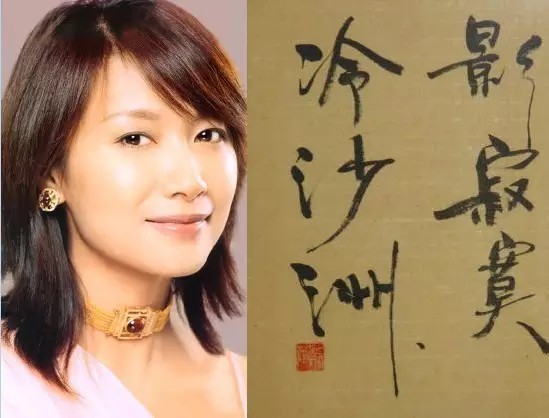 影寂寞
冷沙洲